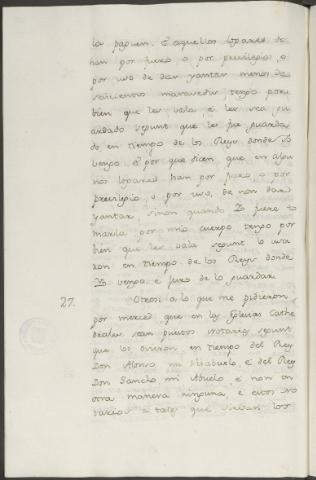 los paguen. E aquellos logares do
han por fuero o por previlegio, o
por uso de dar yantar menos de
seiscientos maravedis, tengo por
bien que les vala, é les sea gu
ardado segunt que les fue guarda
do, en tiempo de los Reys donde Yo
vengo. E por que dicen que en algu
nos logares han por fuero o por
previlegio, o por uso, de non dar
yantar, sinon quando Yo fuere to
marla por mio cuerpo tengo por
bien que les vala segunt lo usa
ron en tiempo de los Reys donde
Yo vengo é fuero de lo guardar.
27. Otrosi a lo que me pidieron
por merced que en las Iglesias Cathe
drales sean puestos notarios segunt
que los ovieron en tiempo del Rey
Don Alonso mi visabuelo, é del Rey
Don Sancho mi Abuelo é non en
otra manera ninguna, e estos no
tarios a tales que sirvan los